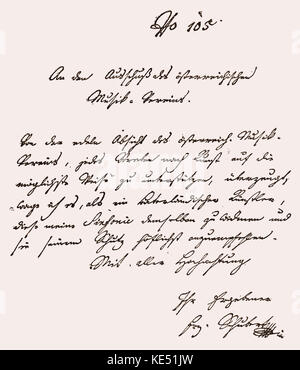 No 105.
An den Ausschuß des österreichischen
Musik-Vereins.
Von der edlen Absicht des österreich. Musik-
Vereins, jedes Streben nach Kunst auf die
möglichste Weise zu unterstützen, überzeugt,
wage ich es, als ein vaterländischer Künstler,
diese meine Sinfonie demselben zu widmen und
sie seinem Schutz höflichst anzuempfehlen.
Mit aller Hochachtung
Ihr Ergebener
Frz. Schubert
alamy
KE51JW